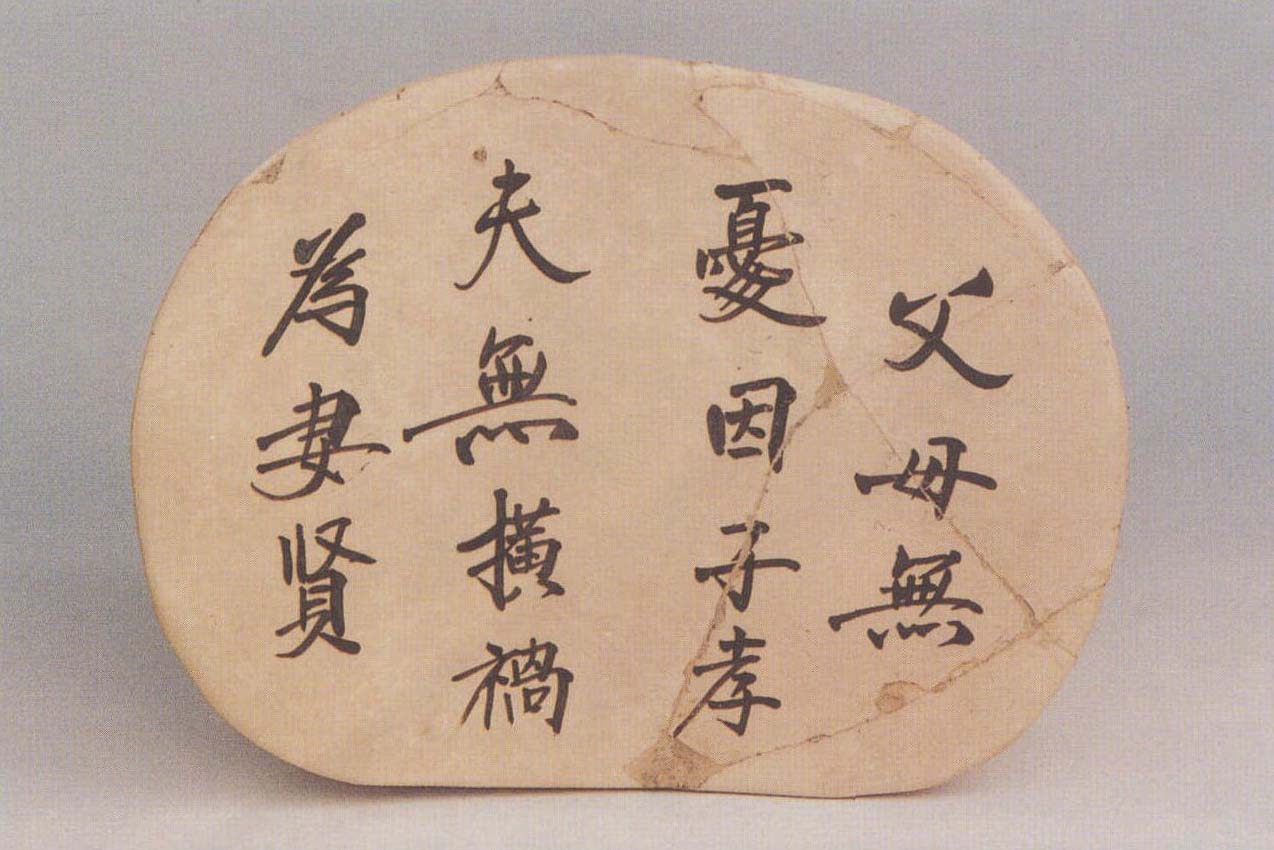 父母無
憂因子孝
夫無橫禍
為妻賢